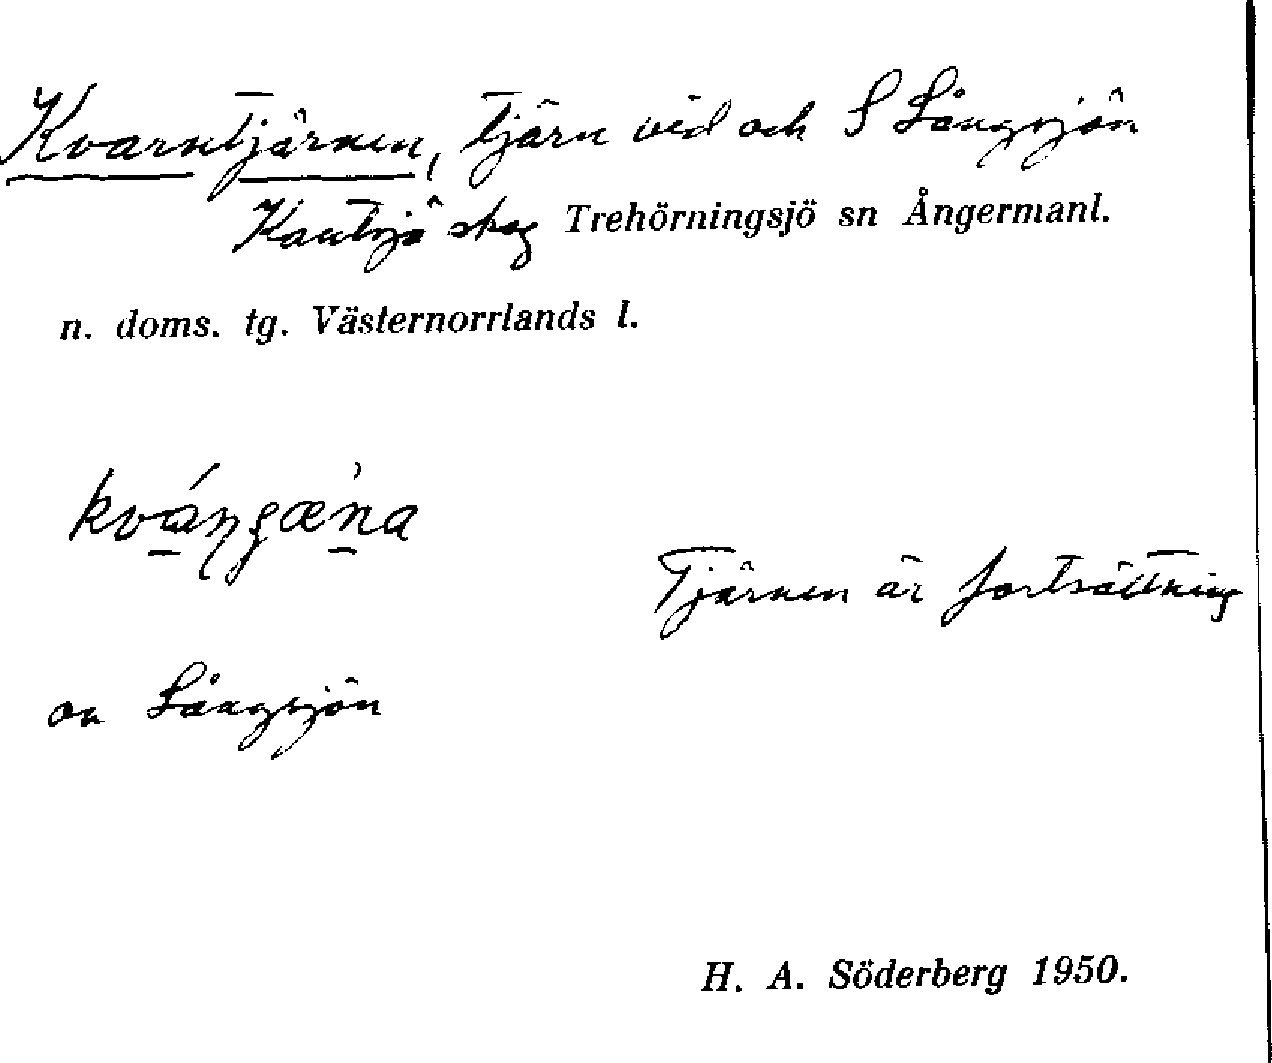 Kvarntjärnen, tjärn vid och S Långsjön
Kantsjö skog Trehörningsjö sn Ångermanl.
n. doms. tg. Västernorrlands l.
Tjärnen är fortsättning
av Långsjön
H. A. Söderberg 1950.